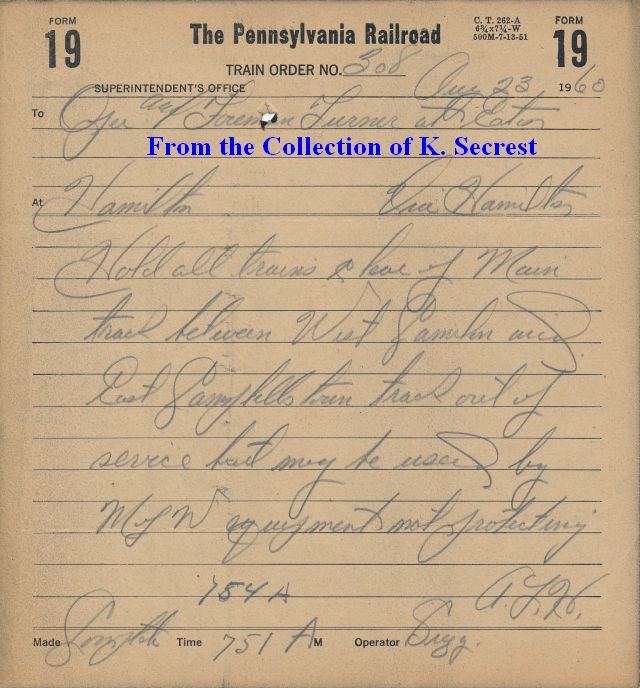 FORM
19
The Pennsylvania Railroad
C. T. 262-A
6¾x7¼-W
500M-7-13-51
FORM
19
TRAIN ORDER NO. 308
SUPERINTENDENT'S OFFICE
Aug 23 1960
To Opr and Foreman Turner at Eaton
From the Collection of K. Secrest
At Hamilton Hamilton
Hold all trains of Main
track between West and
East track out of
service but may be used by
M of W equipment not protecting
754 A
A.L.H.
Made Time 751 A M Operator